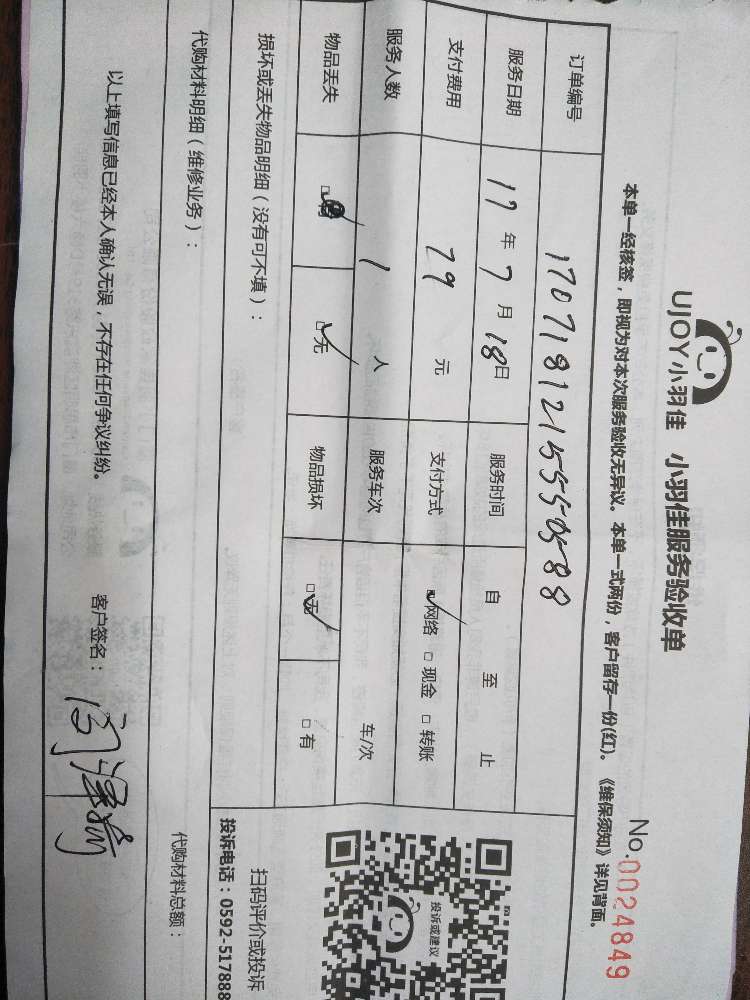 UJOY小羽佳 小羽佳服务验收单
No.0024849
本单一经核签，即视为对本次服务验收无异议。本单一式两份，客户留存一份(红)。《维保须知》详见背面。
订单编号 1707181215550588
服务日期 17年7月18日 服务时间 自 至 止
支付费用 79 元 支付方式 □网络 □现金 □转账
服务人数 1 人 服务车次 车/次
物品丢失 □无 物品损坏 □无 □有
投诉或建议
扫码评价或投诉
投诉电话：0592-517888
损坏或丢失物品明细（没有可不填）：
代购材料明细（维修业务）：
代购材料总额：
以上填写信息已经本人确认无误，不存在任何争议纠纷。
客户签名：